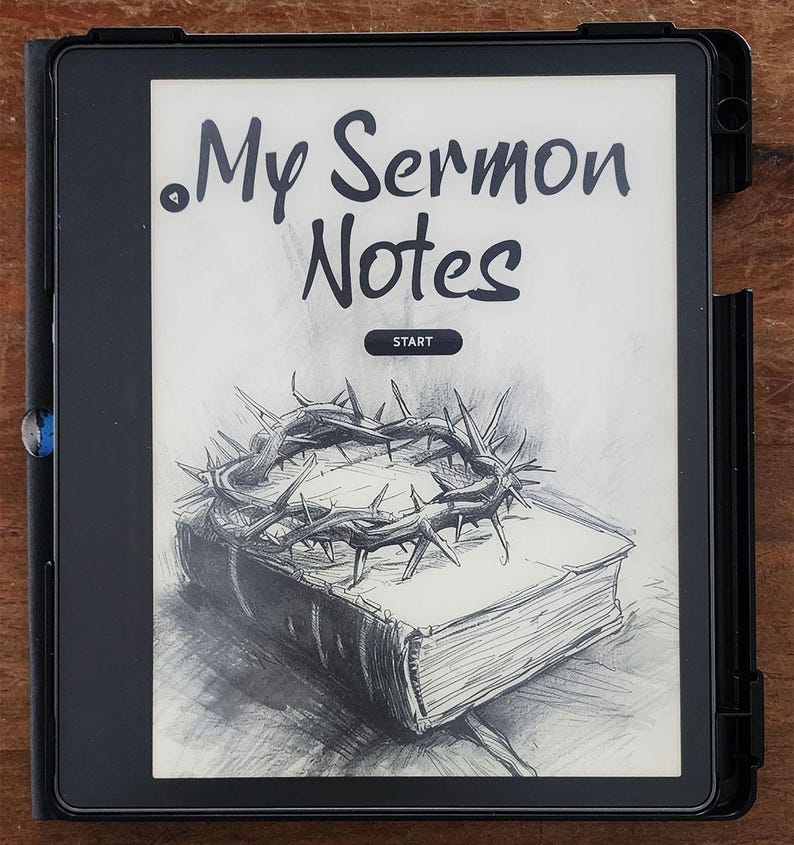 My Sermon
Notes
START